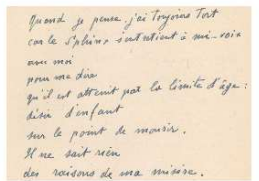 Quand je pense, j'ai Toujours Tort
car le Sphinx s'entretient à mi-voix
avec moi
pour me dire
qu'il est atteint par la limite d'âge :
désir d'enfant
sur le point de mourir.
Il ne sait rien
des raisons de ma misère.